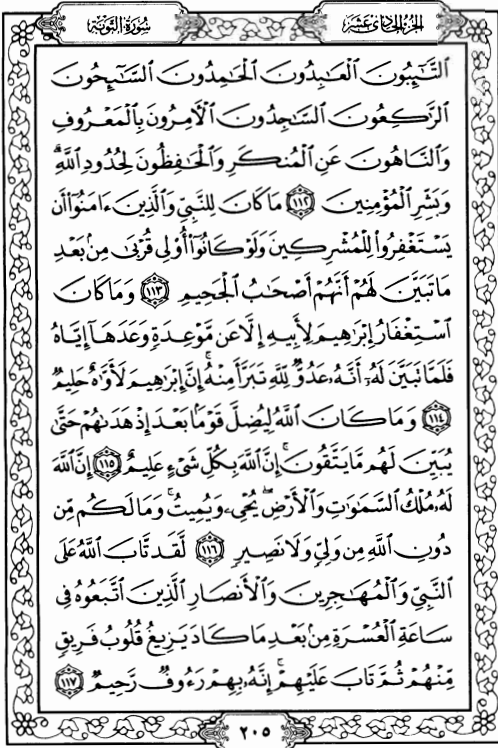 الجزء الحادي عشر
سورة التوبة
ٱلتَّٰٓئِبُونَ ٱلْعَٰبِدُونَ ٱلْحَٰمِدُونَ ٱلسَّٰٓئِحُونَ
ٱلرَّٰكِعُونَ ٱلسَّٰجِدُونَ ٱلْءَامِرُونَ بِٱلْمَعْرُوفِ
وَٱلنَّاهُونَ عَنِ ٱلْمُنكَرِ وَٱلْحَٰفِظُونَ لِحُدُودِ ٱللَّهِ ۗ
وَبَشِّرِ ٱلْمُؤْمِنِينَ ١١٢ مَا كَانَ لِلنَّبِىِّ وَٱلَّذِينَ ءَامَنُوٓا۟ أَن
يَسْتَغْفِرُوا۟ لِلْمُشْرِكِينَ وَلَوْ كَانُوٓا۟ أُو۟لِى قُرْبَىٰ مِنۢ بَعْدِ
مَا تَبَيَّنَ لَهُمْ أَنَّهُمْ أَصْحَٰبُ ٱلْجَحِيمِ ١١٣ وَمَا كَانَ
ٱسْتِغْفَارُ إِبْرَٰهِيمَ لِأَبِيهِ إِلَّا عَن مَّوْعِدَةٍ وَعَدَهَآ إِيَّاهُ
فَلَمَّا تَبَيَّنَ لَهُۥٓ أَنَّهُۥ عَدُوٌّ لِّلَّهِ تَبَرَّأَ مِنْهُ ۚ إِنَّ إِبْرَٰهِيمَ لَأَوَّٰهٌ حَلِيمٌ
١١٤ وَمَا كَانَ ٱللَّهُ لِيُضِلَّ قَوْمًۢا بَعْدَ إِذْ هَدَىٰهُمْ حَتَّىٰ
يُبَيِّنَ لَهُم مَّا يَتَّقُونَ ۚ إِنَّ ٱللَّهَ بِكُلِّ شَىْءٍ عَلِيمٌ ١١٥ إِنَّ ٱللَّهَ
لَهُۥ مُلْكُ ٱلسَّمَٰوَٰتِ وَٱلْأَرْضِ ۖ يُحْىِۦ وَيُمِيتُ ۚ وَمَا لَكُم مِّن
دُونِ ٱللَّهِ مِن وَلِىٍّ وَلَا نَصِيرٍ ١١٦ لَّقَد تَّابَ ٱللَّهُ عَلَى
ٱلنَّبِىِّ وَٱلْمُهَٰجِرِينَ وَٱلْأَنصَارِ ٱلَّذِينَ ٱتَّبَعُوهُ فِى
سَاعَةِ ٱلْعُسْرَةِ مِنۢ بَعْدِ مَا كَادَ يَزِيغُ قُلُوبُ فَرِيقٍ
مِّنْهُمْ ثُمَّ تَابَ عَلَيْهِمْ ۚ إِنَّهُۥ بِهِمْ رَءُوفٌ رَّحِيمٌ ١١٧
٢٠٥